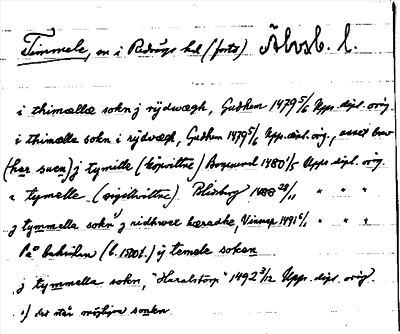 Timmele, en i Redvägs hd (forts) Älvsb. l.
i thimælla sokn j rydwægh, Gudhem 1479 5/6 Upps. dipl. orig.
i thimælla sokn i rydvægh, Gudhem 1479 5/6 Upps. dipl. orig., annet brev
(har suen) j tymille (köpvittne) Bogesund 1480 1/5 Upps dipl. orig.
i tymelle (sigillvittne) 28/11 " " "
j tymmella sokn¹⁾ j ridhwes hæradhe, 1491 6/1 " " "
På baksidan (b. 1500t.) ij temele soken
j tymmella sokn, "Haralstorp" 1492 3/12 Upps. dipl. orig.
¹⁾ Det står möjligen sonken